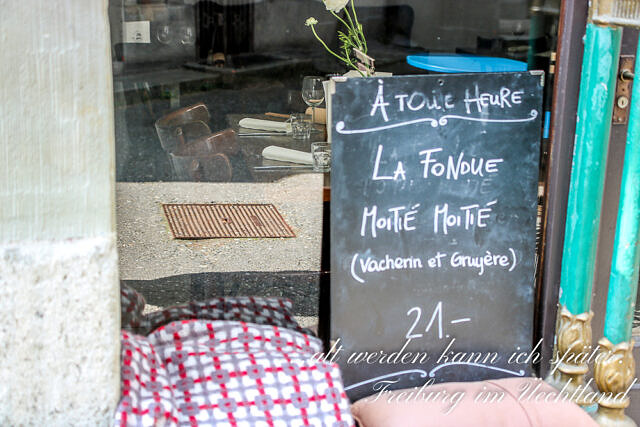 À TOUTE HEURE
LA FONDUE
MOITIÉ MOITIÉ
(Vacherin et Gruyère)
21.-
...alt werden kann ich später.
Freiburg im Üechtland